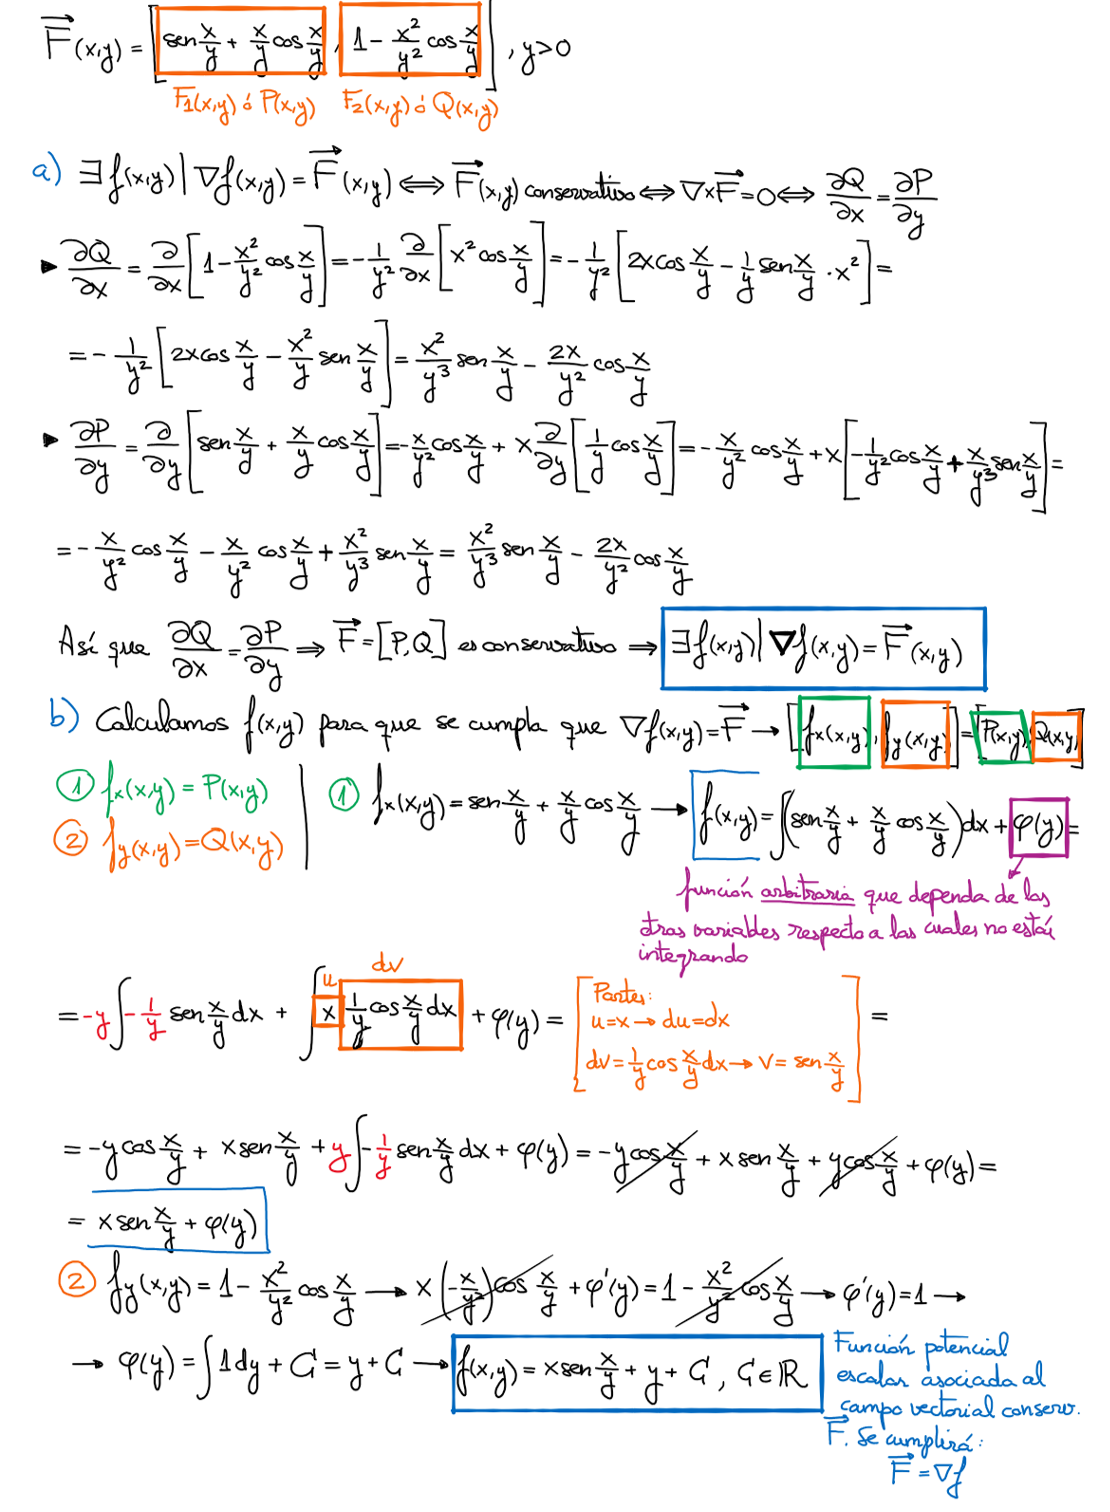 F⃗(x,y) = [sen x/y + x/y cos x/y , 1 - x²/y² cos x/y] , y>0
F1(x,y) ó P(x,y) F2(x,y) ó Q(x,y)
a) ∃ f(x,y) | ∇f(x,y) = F⃗(x,y) ⟺ F⃗(x,y) conservativo ⟺ ∇×F⃗ = 0 ⟺ ∂Q/∂x = ∂P/∂y
▸ ∂Q/∂x = ∂/∂x [1 - x²/y² cos x/y] = - 1/y² ∂/∂x [x² cos x/y] = - 1/y² [2x cos x/y - 1/y sen x/y · x²] =
= - 1/y² [2x cos x/y - x²/y sen x/y] = x²/y³ sen x/y - 2x/y² cos x/y
▸ ∂P/∂y = ∂/∂y [sen x/y + x/y cos x/y] = - x/y² cos x/y + x ∂/∂y [1/y cos x/y] = - x/y² cos x/y + x [- 1/y² cos x/y + x/y³ sen x/y] =
= - x/y² cos x/y - x/y² cos x/y + x²/y³ sen x/y = x²/y³ sen x/y - 2x/y² cos x/y
Así que ∂Q/∂x = ∂P/∂y ⟹ F⃗ = [P,Q] es conservativo ⟹ ∃ f(x,y) | ∇f(x,y) = F⃗(x,y)
b) Calculamos f(x,y) para que se cumpla que ∇f(x,y) = F⃗ → [fx(x,y), fy(x,y)] = [P(x,y), Q(x,y)]
① fx(x,y) = P(x,y)
② fy(x,y) = Q(x,y)
① fx(x,y) = sen x/y + x/y cos x/y → f(x,y) = ∫(sen x/y + x/y cos x/y)dx + φ(y) =
función arbitraria que dependa de las
otras variables respecto a las cuales no está
integrando
= -y ∫ - 1/y sen x/y dx + ∫ x 1/y cos x/y dx + φ(y) =
u dv
[Partes:
u = x → du = dx
dv = 1/y cos x/y dx → v = sen x/y] =
= -y cos x/y + x sen x/y + y ∫ - 1/y sen x/y dx + φ(y) = -y cos x/y + x sen x/y + y cos x/y + φ(y) =
= x sen x/y + φ(y)
② fy(x,y) = 1 - x²/y² cos x/y → x (- x/y²) cos x/y + φ'(y) = 1 - x²/y² cos x/y → φ'(y) = 1 →
→ φ(y) = ∫ 1 dy + C = y + C → f(x,y) = x sen x/y + y + C , C ∈ ℝ
Función potencial
escalar asociada al
campo vectorial conserv.
F⃗. Se cumplirá:
F⃗ = ∇f